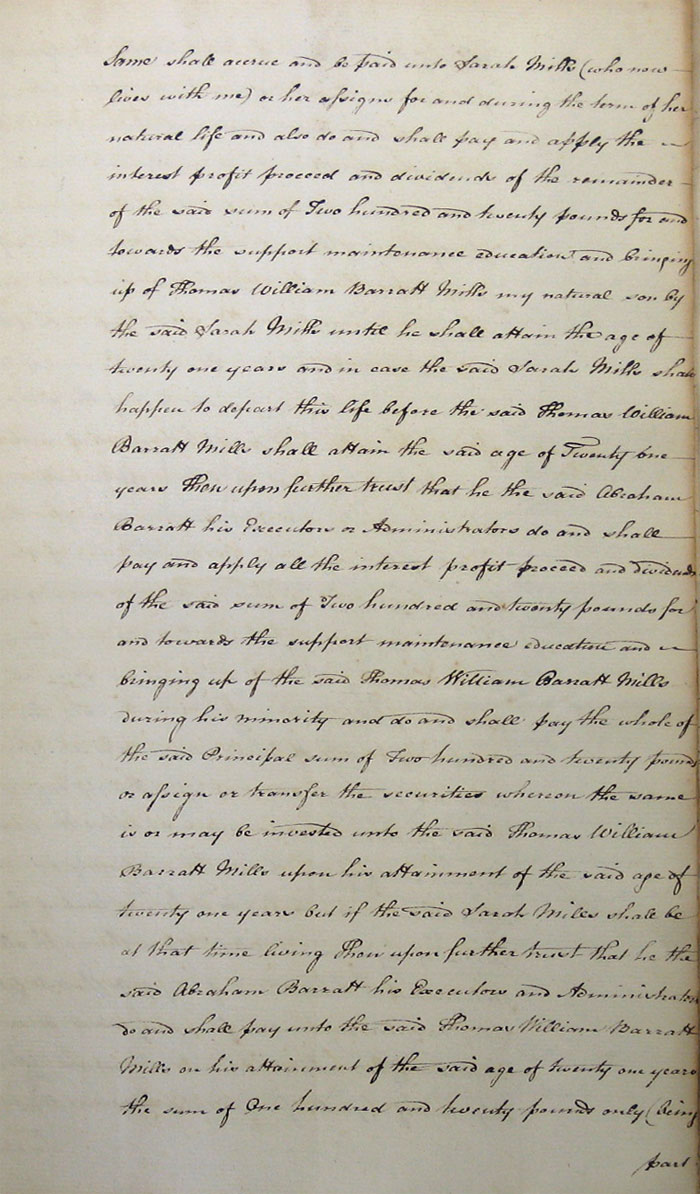 Same shall accrue and be paid unto Sarah Mills (who now
lives with me) or her assigns for and during the term of her
natural life and also do and shall pay and apply the
interest profit proceed and dividends of the remainder
of the said sum of Two hundred and twenty pounds for and
towards the support maintenance education and bringing
up of Thomas William Barratt Mills my natural son by
the said Sarah Mills until he shall attain the age of
twenty one years and in case the said Sarah Mills shall
happen to depart this life before the said Thomas William
Barratt Mills shall attain the said age of Twenty one
years Then upon further trust that he the said Abraham
Barratt his Executors or Administrators do and shall
pay and apply all the interest profit proceed and dividends
of the said sum of Two hundred and twenty pounds for
and towards the support maintenance education and
bringing up of the said Thomas William Barratt Mills
during his minority and do and shall pay the whole of
the said Principal sum of Two hundred and twenty pounds
or assign or transfer the securities whereon the same
is or may be invested unto the said Thomas William
Barratt Mills upon his attainment of the said age of
twenty one years but if the said Sarah Mills shall be
at that time living Then upon further trust that he the
said Abraham Barratt his Executors and Administrators
do and shall pay unto the said Thomas William Barratt
Mills on his attainment of the said age of twenty one years
the sum of One hundred and twenty pounds only (being
part